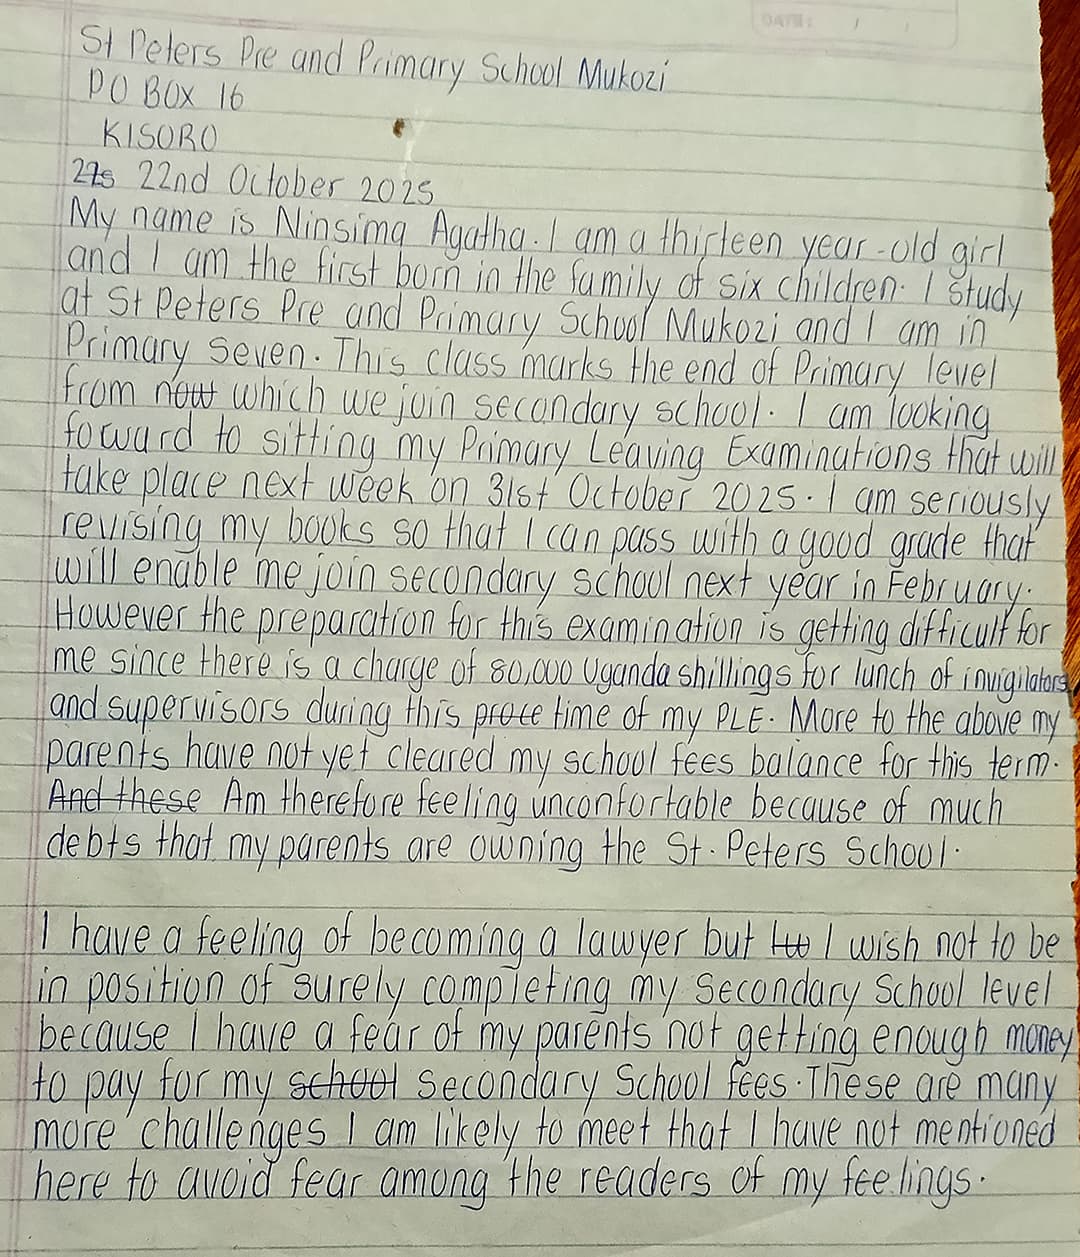 DATE: / /
St Peters Pre and Primary School Mukozi
PO BOX 16
KISORO
22nd October 2025
My name is Ninsima Agatha. I am a thirteen year-old girl
and I am the first born in the family of six children. I study
at St Peters Pre and Primary School Mukozi and I am in
Primary Seven. This class marks the end of Primary level
from now which we join secondary school. I am looking
foward to sitting my Primary Leaving Examinations that will
take place next week on 31st October 2025. I am seriously
revising my books so that I can pass with a good grade that
will enable me join secondary school next year in February.
However the preparation for this examination is getting difficult for
me since there is a charge of 80,000 Uganda shillings for lunch of invigilators
and supervisors during this proce time of my PLE. More to the above my
parents have not yet cleared my school fees balance for this term.
And these Am therefore feeling unconfortable because of much
debts that my parents are owning the St. Peters School.
I have a feeling of becoming a lawyer but I wish not to be
in position of surely completing my Secondary School level
because I have a fear of my parents not getting enough money
to pay for my school Secondary School fees. These are many
more challenges I am likely to meet that I have not mentioned
here to avoid fear among the readers of my feelings.